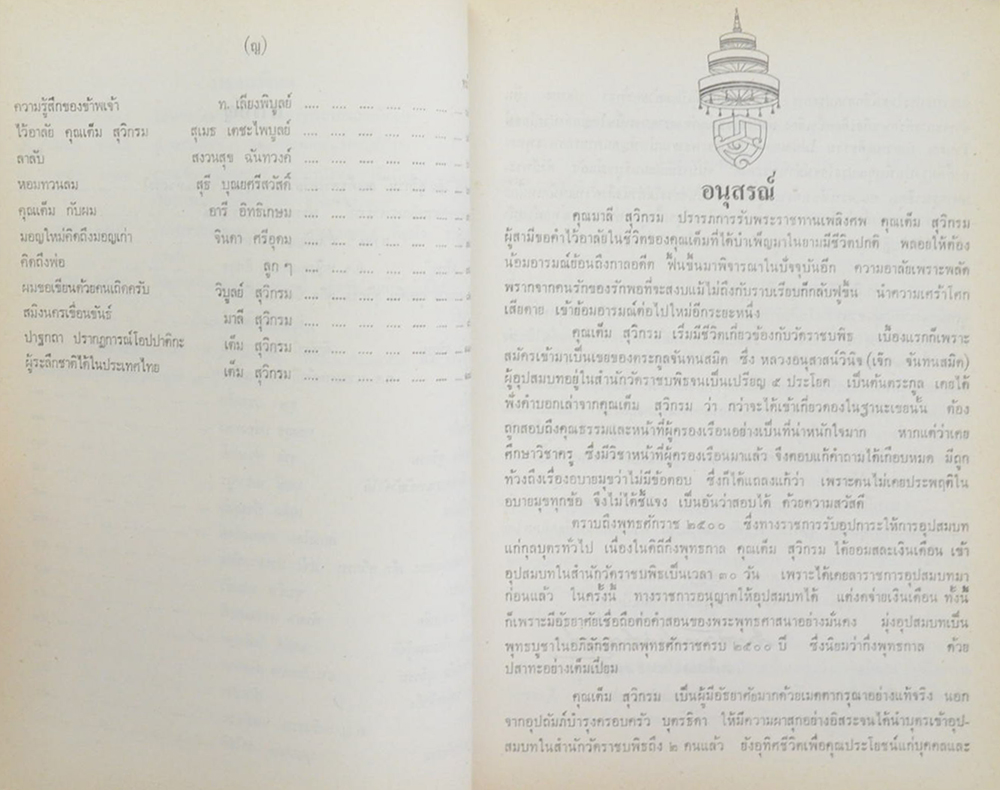 (ญ)
ความรู้สึกของข้าพเจ้า ท. เลียงพิบูลย์ .... .... .... .... .... ....
ไว้อาลัย คุณเต็ม สุวิกรม สุเมธ เตชะไพบูลย์ .... .... .... .... .... ....
ลาลับ สงวนสุข ฉันทวงค์ .... .... .... .... .... ....
หอมทวนลม สุธี บุณยศรีสวัสดิ์ .... .... .... .... .... ....
คุณเต็ม กับผม อารี อิทธิเกษม .... .... .... .... .... ....
มอญใหม่คิดถึงมอญเก่า จินดา ศรีอุดม .... .... .... .... .... ....
คิดถึงพ่อ ลูก ๆ .... .... .... .... .... ....
ผมขอเขียนด้วยคนเถิดครับ วิบูลย์ สุวิกรม .... .... .... .... .... ....
สมิงนครเขื่อนขันธ์ มาลี สุวิกรม .... .... .... .... .... ....
ปาฐกถา ปรากฏการณ์โอปปาติกะ เต็ม สุวิกรม .... .... .... .... .... ....
ผู้ระลึกชาติได้ในประเทศไทย เต็ม สุวิกรม .... .... .... .... .... ....
อนุสรณ์
คุณมาลี สุวิกรม ปรารภการรับพระราชทานเพลิงศพ คุณเต็ม สุวิกรม
ผู้สามีขอคำไว้อาลัยในชีวิตของคุณเต็มที่ได้บำเพ็ญมาในยามมีชีวิตปกติ พลอยให้ต้อง
น้อมอารมณ์ย้อนถึงกาลอดีต ฟื้นขึ้นมาพิจารณาในปัจจุบันอีก ความอาลัยเพราะพลัด
พรากจากคนรักของรักพอที่จะสงบแม้ไม่ถึงกับราบเรียบก็กลับฟูขึ้น นำความเศร้าโศก
เสียดาย เข้าย้อมอารมณ์ต่อไปใหม่อีกระยะหนึ่ง
คุณเต็ม สุวิกรม เริ่มมีชีวิตเกี่ยวข้องกับวัดราชบพิธ เบื้องแรกก็เพราะ
สมัครเข้ามาเป็นเขยของตระกูลจันทนสมิต ซึ่ง หลวงอนุสาสน์วินิจ (เจิก จันทนสมิต)
ผู้อุปสมบทอยู่ในสำนักวัดราชบพิธจนเป็นเปรียญ ๕ ประโยค เป็นต้นตระกูล เคยได้
ฟังคำบอกเล่าจากคุณเต็ม สุวิกรม ว่า กว่าจะได้เข้าเกี่ยวดองในฐานะเขยนั้น ต้อง
ถูกสอบถึงคุณธรรมและหน้าที่ผู้ครองเรือนอย่างเป็นที่น่าหนักใจมาก หากแต่ว่าเคย
ศึกษาวิชาครู ซึ่งมีวิชาหน้าที่ผู้ครองเรือนมาแล้ว จึงตอบแก้คำถามได้เกือบหมด มีถูก
ท้วงถึงเรื่องอบายมุขว่าไม่มีข้อตอบ ซึ่งก็ได้แถลงแก้ว่า เพราะตนไม่เคยประพฤติใน
อบายมุขทุกข้อ จึงไม่ได้ชี้แจง เป็นอันว่าสอบได้ ด้วยความสวัสดี
ตราบถึงพุทธศักราช ๒๕๐๐ ซึ่งทางราชการรับอุปการะให้การอุปสมบท
แก่กุลบุตรทั่วไป เนื่องในดิถีกึ่งพุทธกาล คุณเต็ม สุวิกรม ได้ยอมสละเงินเดือน เข้า
อุปสมบทในสำนักวัดราชบพิธเป็นเวลา ๓๐ วัน เพราะได้เคยลาราชการอุปสมบทมา
ก่อนแล้ว ในครั้งนี้ ทางราชการอนุญาตให้อุปสมบทได้ แต่งดจ่ายเงินเดือน ทั้งนี้
ก็เพราะมีอัธยาศัยเชื่อถือต่อคำสอนของพระพุทธศาสนาอย่างมั่นคง มุ่งอุปสมบทเป็น
พุทธบูชาในอภิลักขิตกาลพุทธศักราชครบ ๒๕๐๐ ปี ซึ่งนิยมว่ากึ่งพุทธกาล ด้วย
ปสาทะอย่างเต็มเปี่ยม
คุณเต็ม สุวิกรม เป็นผู้มีอัธยาศัยมากด้วยเมตตากรุณาอย่างแท้จริง นอก
จากอุปถัมภ์บำรุงครอบครัว บุตรธิดา ให้มีความผาสุกอย่างอิสระจนได้นำบุตรเข้าอุป-
สมบทในสำนักวัดราชบพิธถึง ๒ คนแล้ว ยังอุทิศชีวิตเพื่อคุณประโยชน์แก่บุคคลและ